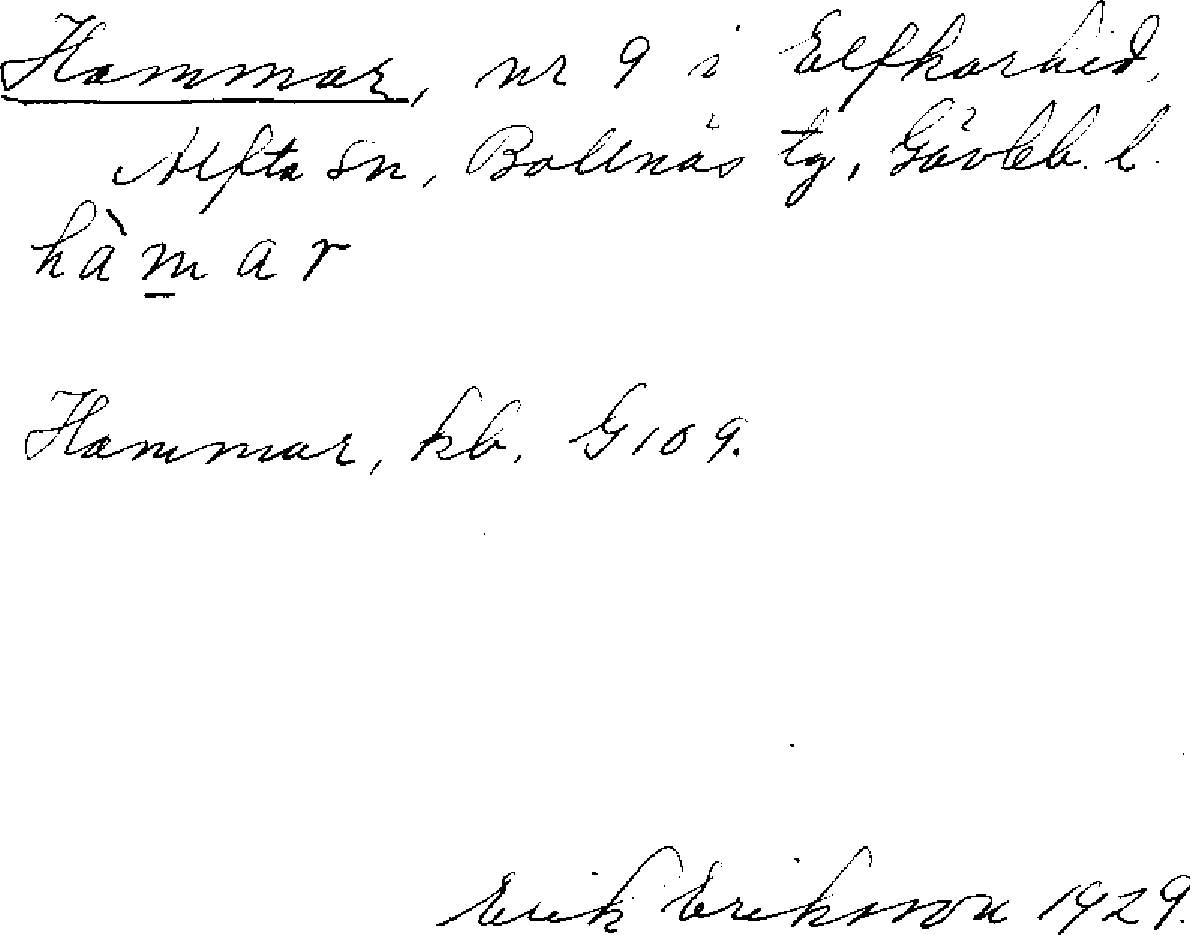 Hammar, nr 9 i Elfkarhed,
Alfta sn, Bollnäs tg, Gävleb. l.
hàmar
Hammar, kb. G109.
Erik Eriksson 1929.